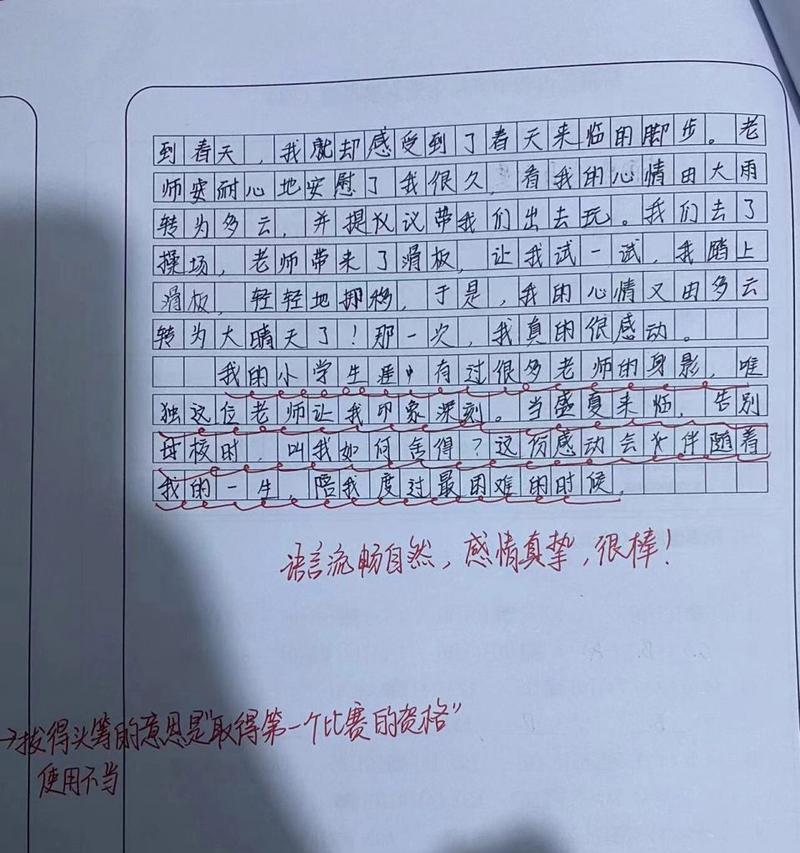 到春天，我就却感受到了春天来临的脚步。老
师耐心地安慰了我很久，看我的心情由大雨
转为多云，并提议带我们出去玩。我们去了
操场，老师带来了滑板，让我试一试，我踏上
滑板，轻轻地挪移，于是，我的心情又由多云
转为大晴天了！那一次，我真的很感动。
我的小学生涯中有过很多老师的身影，唯
独这位老师让我印象深刻。当盛夏来临，告别
母校时，叫我如何舍得？这份感动会伴随着
我的一生，陪我度过最困难的时候。
语言流畅自然，感情真挚，很棒！
→拔得头筹的意思是“取得第一个比赛的资格”
使用不当